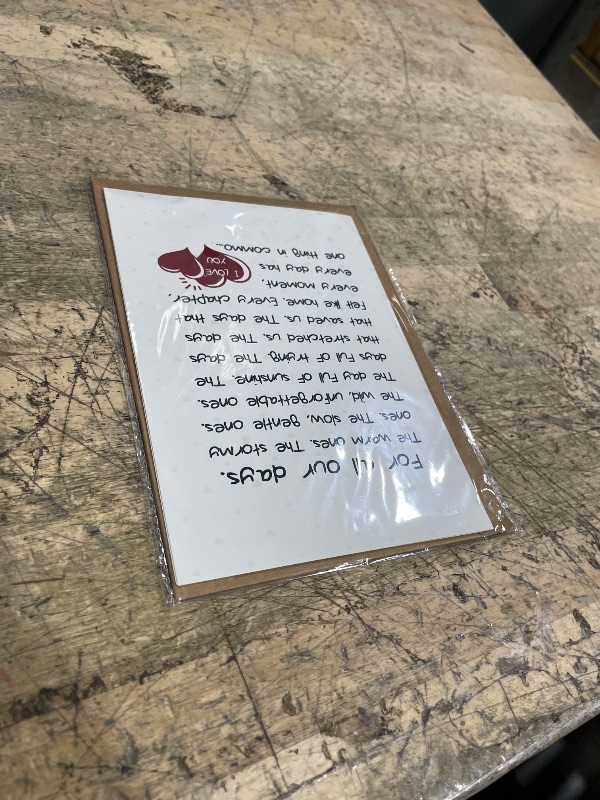 For all our days.
The warm ones. The stormy
ones. The slow, gentle ones.
The wild, unforgettable ones.
The day full of sunshine. The
days full of trying. The days
that stretched us. The days
that saved us. The days that
felt like home. Every chapter,
every moment,
every day has
one thing in commo...
I LOVE
YOU